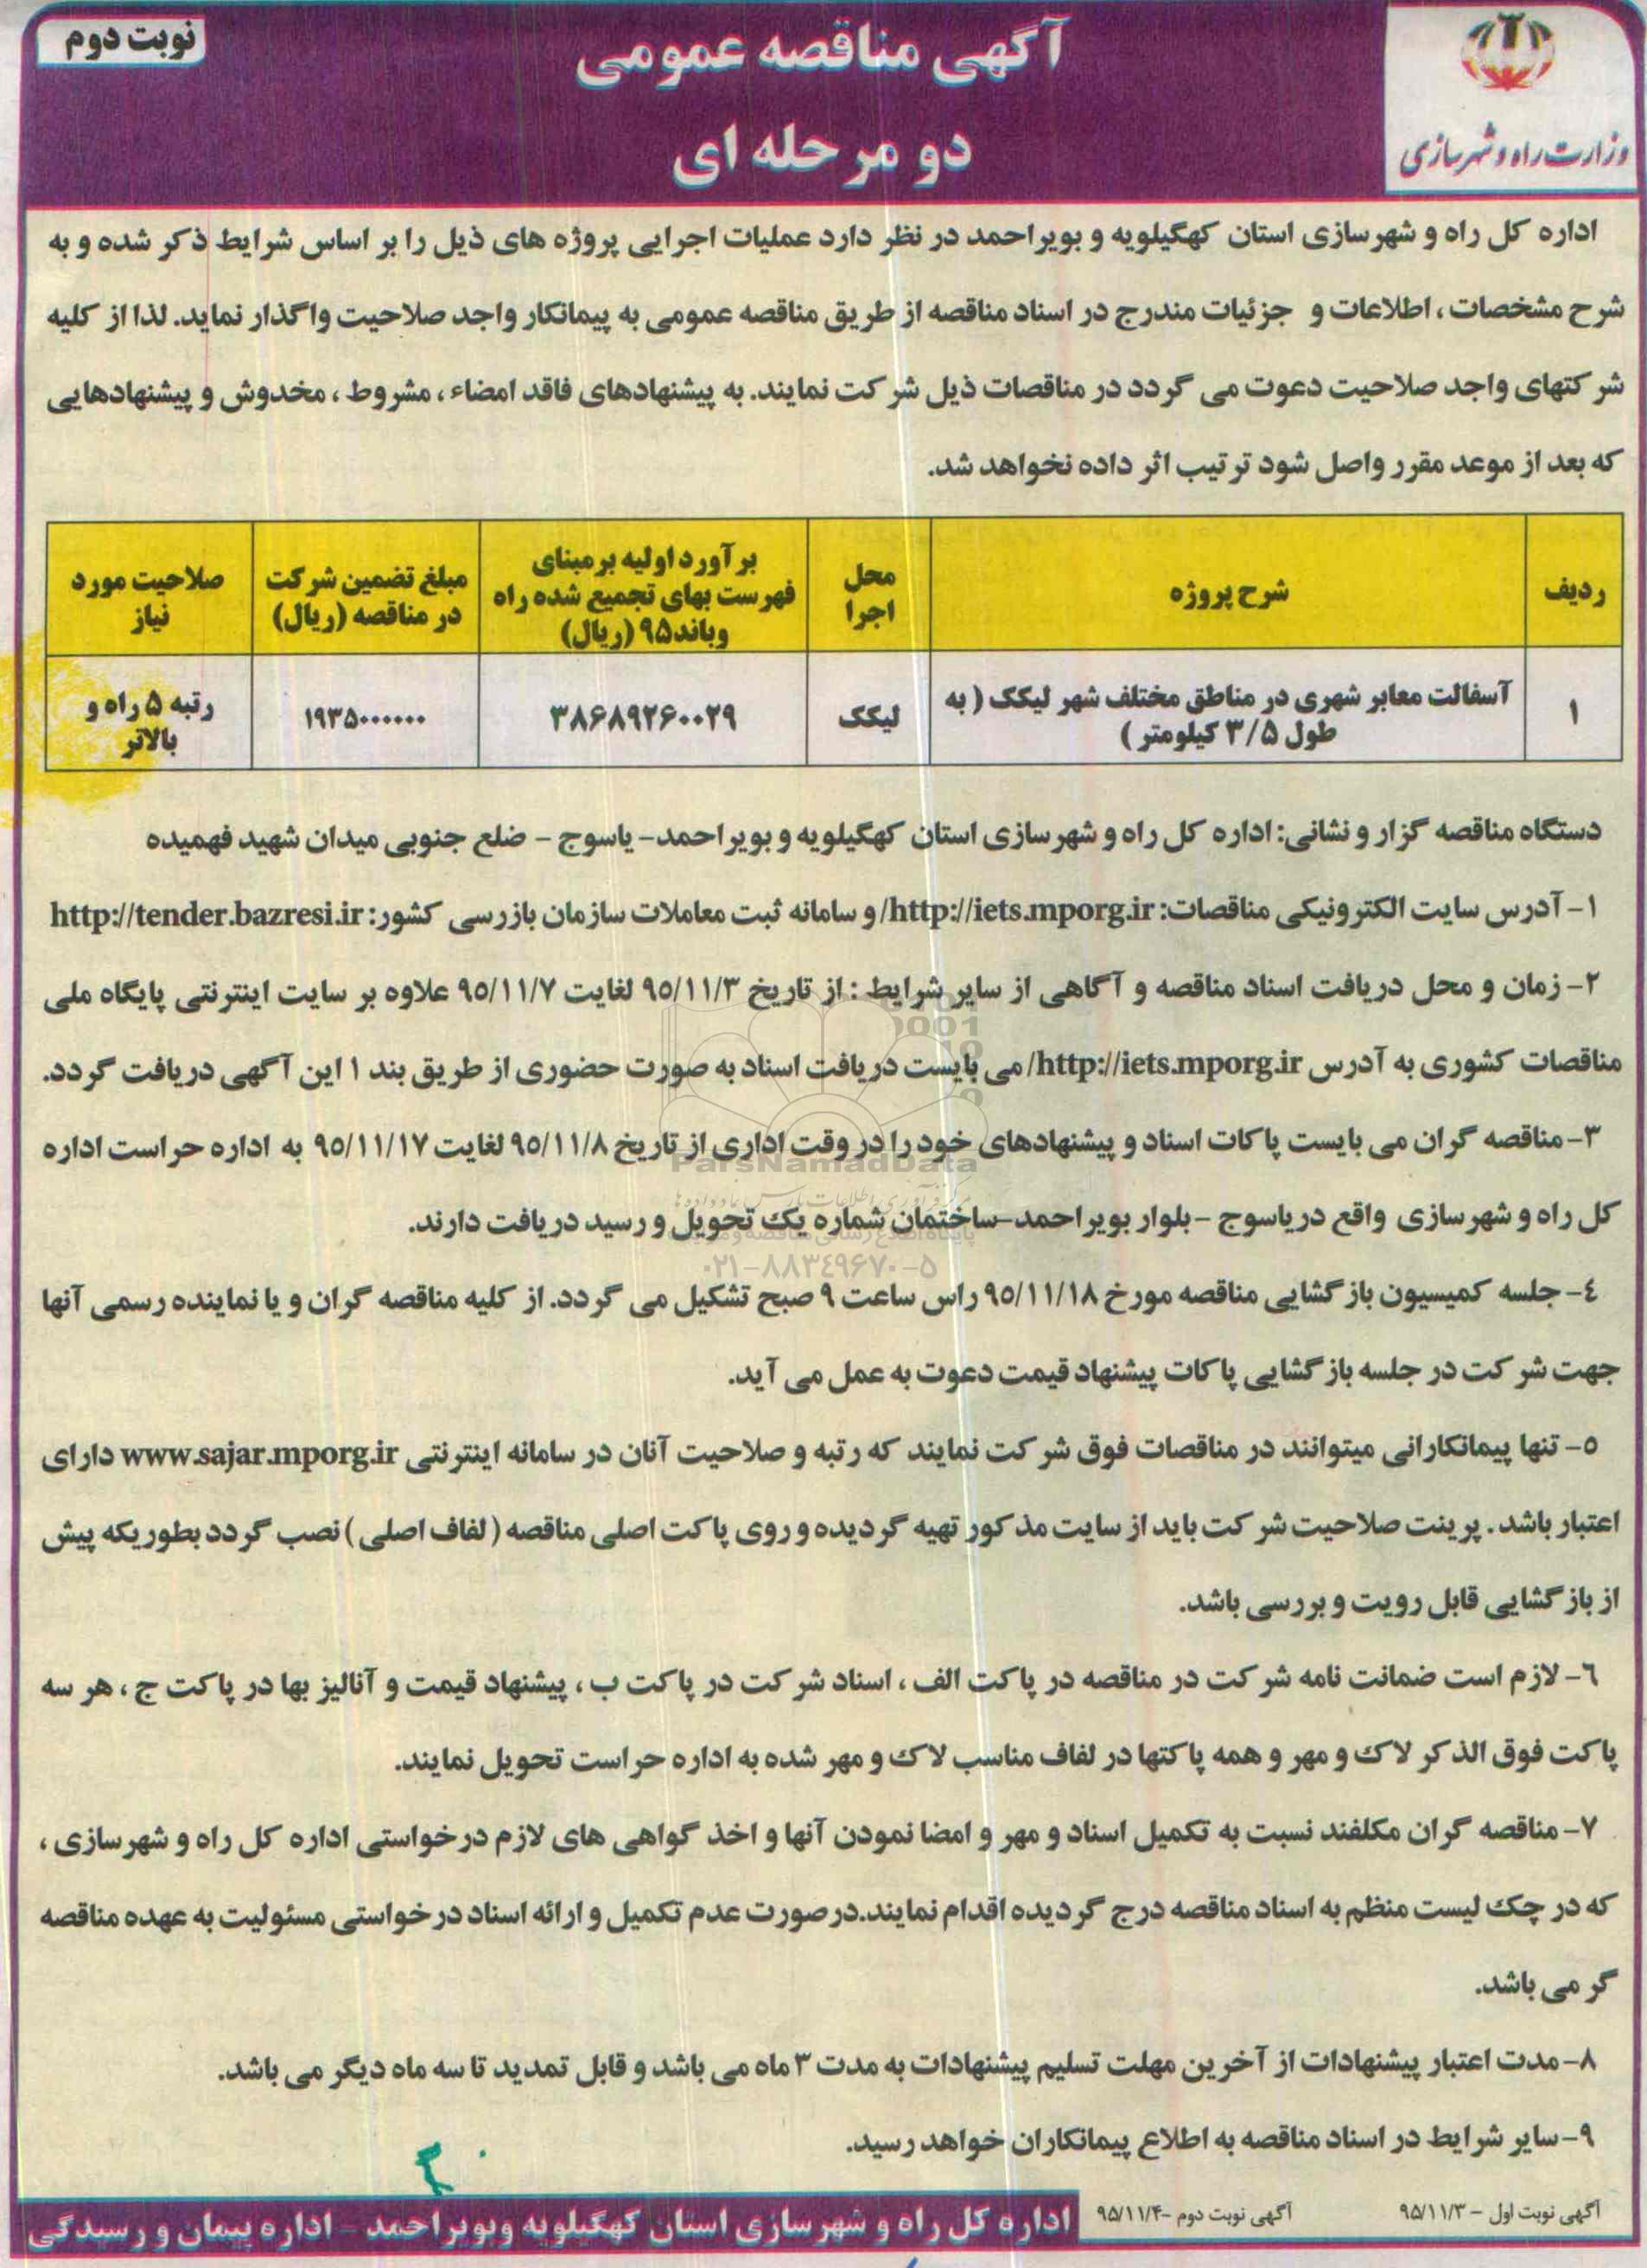 نوبت دوم
آگهی مناقصه عمومی
دو مرحله ای
وزارت راه و شهرسازی
اداره کل راه و شهرسازی استان کهگیلویه و بویراحمد در نظر دارد عملیات اجرایی پروژه های ذیل را بر اساس شرایط ذکر شده و به
شرح مشخصات ، اطلاعات و جزئیات مندرج در اسناد مناقصه از طریق مناقصه عمومی به پیمانکار واجد صلاحیت واگذار نماید. لذا از کلیه
شرکتهای واجد صلاحیت دعوت می گردد در مناقصات ذیل شرکت نمایند. به پیشنهادهای فاقد امضاء ، مشروط ، مخدوش و پیشنهادهایی
که بعد از موعد مقرر واصل شود ترتیب اثر داده نخواهد شد.
ردیف
شرح پروژه
محل
اجرا
برآورد اولیه برمبنای
فهرست بهای تجمیع شده راه
وباند۹۵ (ریال)
مبلغ تضمین شرکت
در مناقصه (ریال)
صلاحیت مورد
نیاز
۱
آسفالت معابر شهری در مناطق مختلف شهر لیکک ( به
طول ۳/۵ کیلومتر )
لیکک
۳۸۶۸۹۲۶۰۰۲۹
۱۹۳۵۰۰۰۰۰۰
رتبه ۵ راه و
بالاتر
دستگاه مناقصه گزار و نشانی: اداره کل راه و شهرسازی استان کهگیلویه و بویراحمد- یاسوج - ضلع جنوبی میدان شهید فهمیده
۱- آدرس سایت الکترونیکی مناقصات: http://iets.mporg.ir/ و سامانه ثبت معاملات سازمان بازرسی کشور: http://tender.bazresi.ir
۲- زمان و محل دریافت اسناد مناقصه و آگاهی از سایر شرایط : از تاریخ ۹۵/۱۱/۳ لغایت ۹۵/۱۱/۷ علاوه بر سایت اینترنتی پایگاه ملی
مناقصات کشوری به آدرس http://iets.mporg.ir/ می بایست دریافت اسناد به صورت حضوری از طریق بند ۱ این آگهی دریافت گردد.
۳- مناقصه گران می بایست پاکات اسناد و پیشنهادهای خود را در وقت اداری از تاریخ ۹۵/۱۱/۸ لغایت ۹۵/۱۱/۱۷ به اداره حراست اداره
ParsNamadData
کل راه و شهرسازی واقع در یاسوج - بلوار بویراحمد-ساختمان شماره یک تحویل و رسید دریافت دارند.
۰۲۱-۸۸۳۴۹۶۷۰-۵
۴- جلسه کمیسیون بازگشایی مناقصه مورخ ۹۵/۱۱/۱۸ راس ساعت ۹ صبح تشکیل می گردد. از کلیه مناقصه گران و یا نماینده رسمی آنها
جهت شرکت در جلسه بازگشایی پاکات پیشنهاد قیمت دعوت به عمل می آید.
۵- تنها پیمانکارانی میتوانند در مناقصات فوق شرکت نمایند که رتبه و صلاحیت آنان در سامانه اینترنتی www.sajar.mporg.ir دارای
اعتبار باشد . پرینت صلاحیت شرکت باید از سایت مذکور تهیه گردیده و روی پاکت اصلی مناقصه ( لفاف اصلی ) نصب گردد بطوریکه پیش
از بازگشایی قابل رویت و بررسی باشد.
۶- لازم است ضمانت نامه شرکت در مناقصه در پاکت الف ، اسناد شرکت در پاکت ب ، پیشنهاد قیمت و آنالیز بها در پاکت ج ، هر سه
پاکت فوق الذکر لاک و مهر و همه پاکتها در لفاف مناسب لاک و مهر شده به اداره حراست تحویل نمایند.
۷- مناقصه گران مکلفند نسبت به تکمیل اسناد و مهر و امضا نمودن آنها و اخذ گواهی های لازم درخواستی اداره کل راه و شهرسازی ،
که در چک لیست منظم به اسناد مناقصه درج گردیده اقدام نمایند.در صورت عدم تکمیل و ارائه اسناد درخواستی مسئولیت به عهده مناقصه
گر می باشد.
۸- مدت اعتبار پیشنهادات از آخرین مهلت تسلیم پیشنهادات به مدت ۳ ماه می باشد و قابل تمدید تا سه ماه دیگر می باشد.
۹- سایر شرایط در اسناد مناقصه به اطلاع پیمانکاران خواهد رسید.
آگهی نوبت اول - ۹۵/۱۱/۳
آگهی نوبت دوم -۹۵/۱۱/۴
اداره کل راه و شهرسازی استان کهگیلویه وبویراحمد - اداره پیمان و رسیدگی